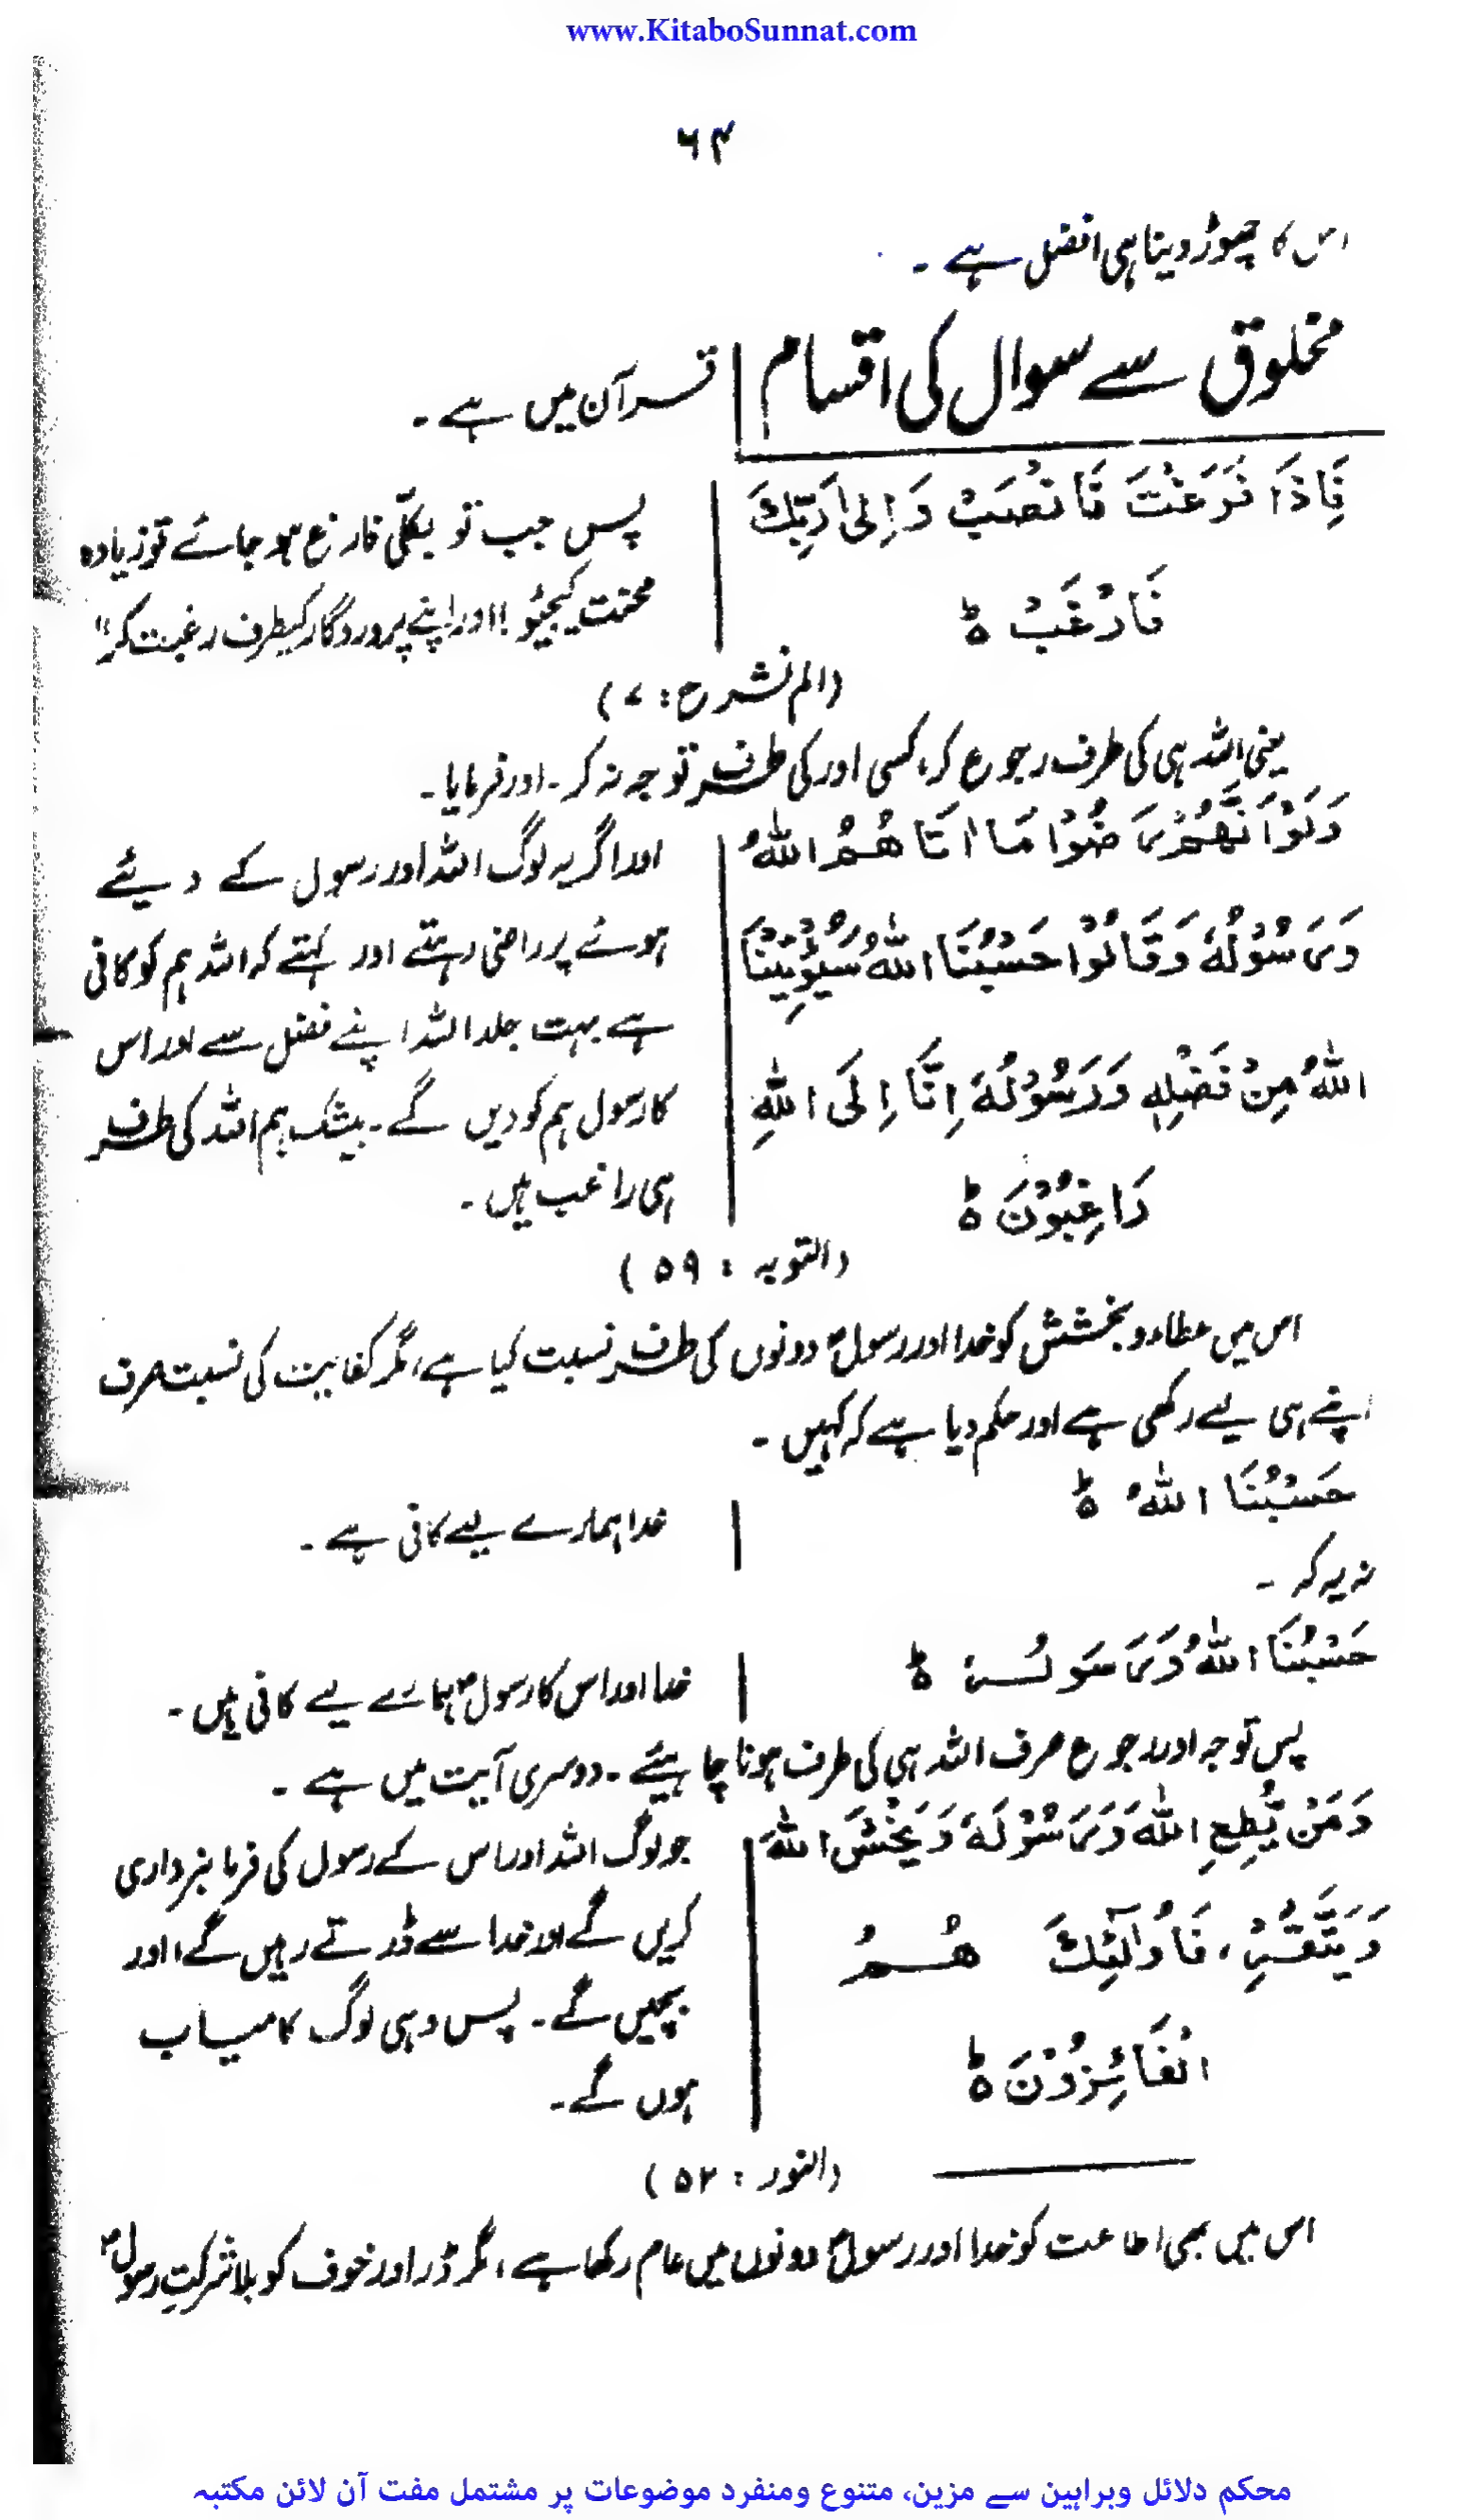 www.KitaboSunnat.com
۶۴
اس کا چھوڑ دینا ہی افضل ہے ۔
مخلوق سے سوال کی اقسام
قرآن میں ہے ۔
فَاِذَا فَرَغْتَ فَانْصَبْ وَاِلٰی رَبِّكَ
فَارْغَبْ ۃ
پس جب تو یکلّی فارغ ہو جائے تو زیادہ
محنت کیجیٔو! اور اپنے پروردگار کیطرف رغبت کر"
(الم نشرح: ۷)
یعنی اللہ ہی کی طرف رجوع کر، کسی اور کی طرف توجہ نہ کر ۔ اور فرمایا ۔
وَلَوْ اَنَّهُمْ رَضُوْا مَا اٰتَاهُمُ اللّٰهُ
وَرَسُوْلُهٗ وَقَالُوْا حَسْبُنَا اللّٰهُ سَيُؤْتِيْنَا
اللّٰهُ مِنْ فَضْلِهٖ وَرَسُوْلُهٗ اِنَّا اِلَى اللّٰهِ
رَاغِبُوْنَ ۃ
اور اگر یہ لوگ اللہ اور رسول کے دیئے
ہوئے پر راضی رہتے اور کہتے کہ اللہ ہم کو کافی
ہے بہت جلد اللہ اپنے فضل سے اور اس
کا رسول ہم کو دیں گے ۔ بیشک ہم اللہ کی طرف
ہی راغب ہیں ۔
(التوبہ : ۵۹)
اس میں عطاء و بخشش کو خدا اور رسولؐ دونوں کی طرف نسبت کیا ہے، مگر کفایت کی نسبت صرف
اپنے ہی لیے رکھی ہے اور حکم دیا ہے کہ کہیں ۔
حَسْبُنَا اللّٰهُ ۃ
خدا ہمارے لیے کافی ہے ۔
نہ یہ کہ ۔
حَسْبُنَا اللّٰهُ وَرَسُولُهٗ ۃ
خدا اور اس کا رسولؐ ہمارے لیے کافی ہیں ۔
پس توجہ اور رجوع صرف اللہ ہی کی طرف ہونا چاہیئے ۔ دوسری آیت میں ہے ۔
وَمَنْ يُّطِعِ اللّٰهَ وَرَسُوْلَهٗ وَيَخْشَ اللّٰهَ
وَيَتَّقْهِ، فَاُولٰٓئِكَ هُمُ
الْفَائِزُوْنَ ۃ
جو لوگ اللہ اور اس کے رسول کی فرمانبرداری
کریں گے اور خدا سے ڈرتے رہیں گے، اور
بچیں گے ۔ پس وہی لوگ کامیاب
ہوں گے ۔
(النور : ۵۲)
اس میں بھی اطاعت کو خدا اور رسولؐ دونوں میں عام رکھا ہے ، مگر ڈر اور خوف کو بلا شرکتِ رسولؐ
محکم دلائل وبراہین سے مزین، متنوع ومنفرد موضوعات پر مشتمل مفت آن لائن مکتبہ